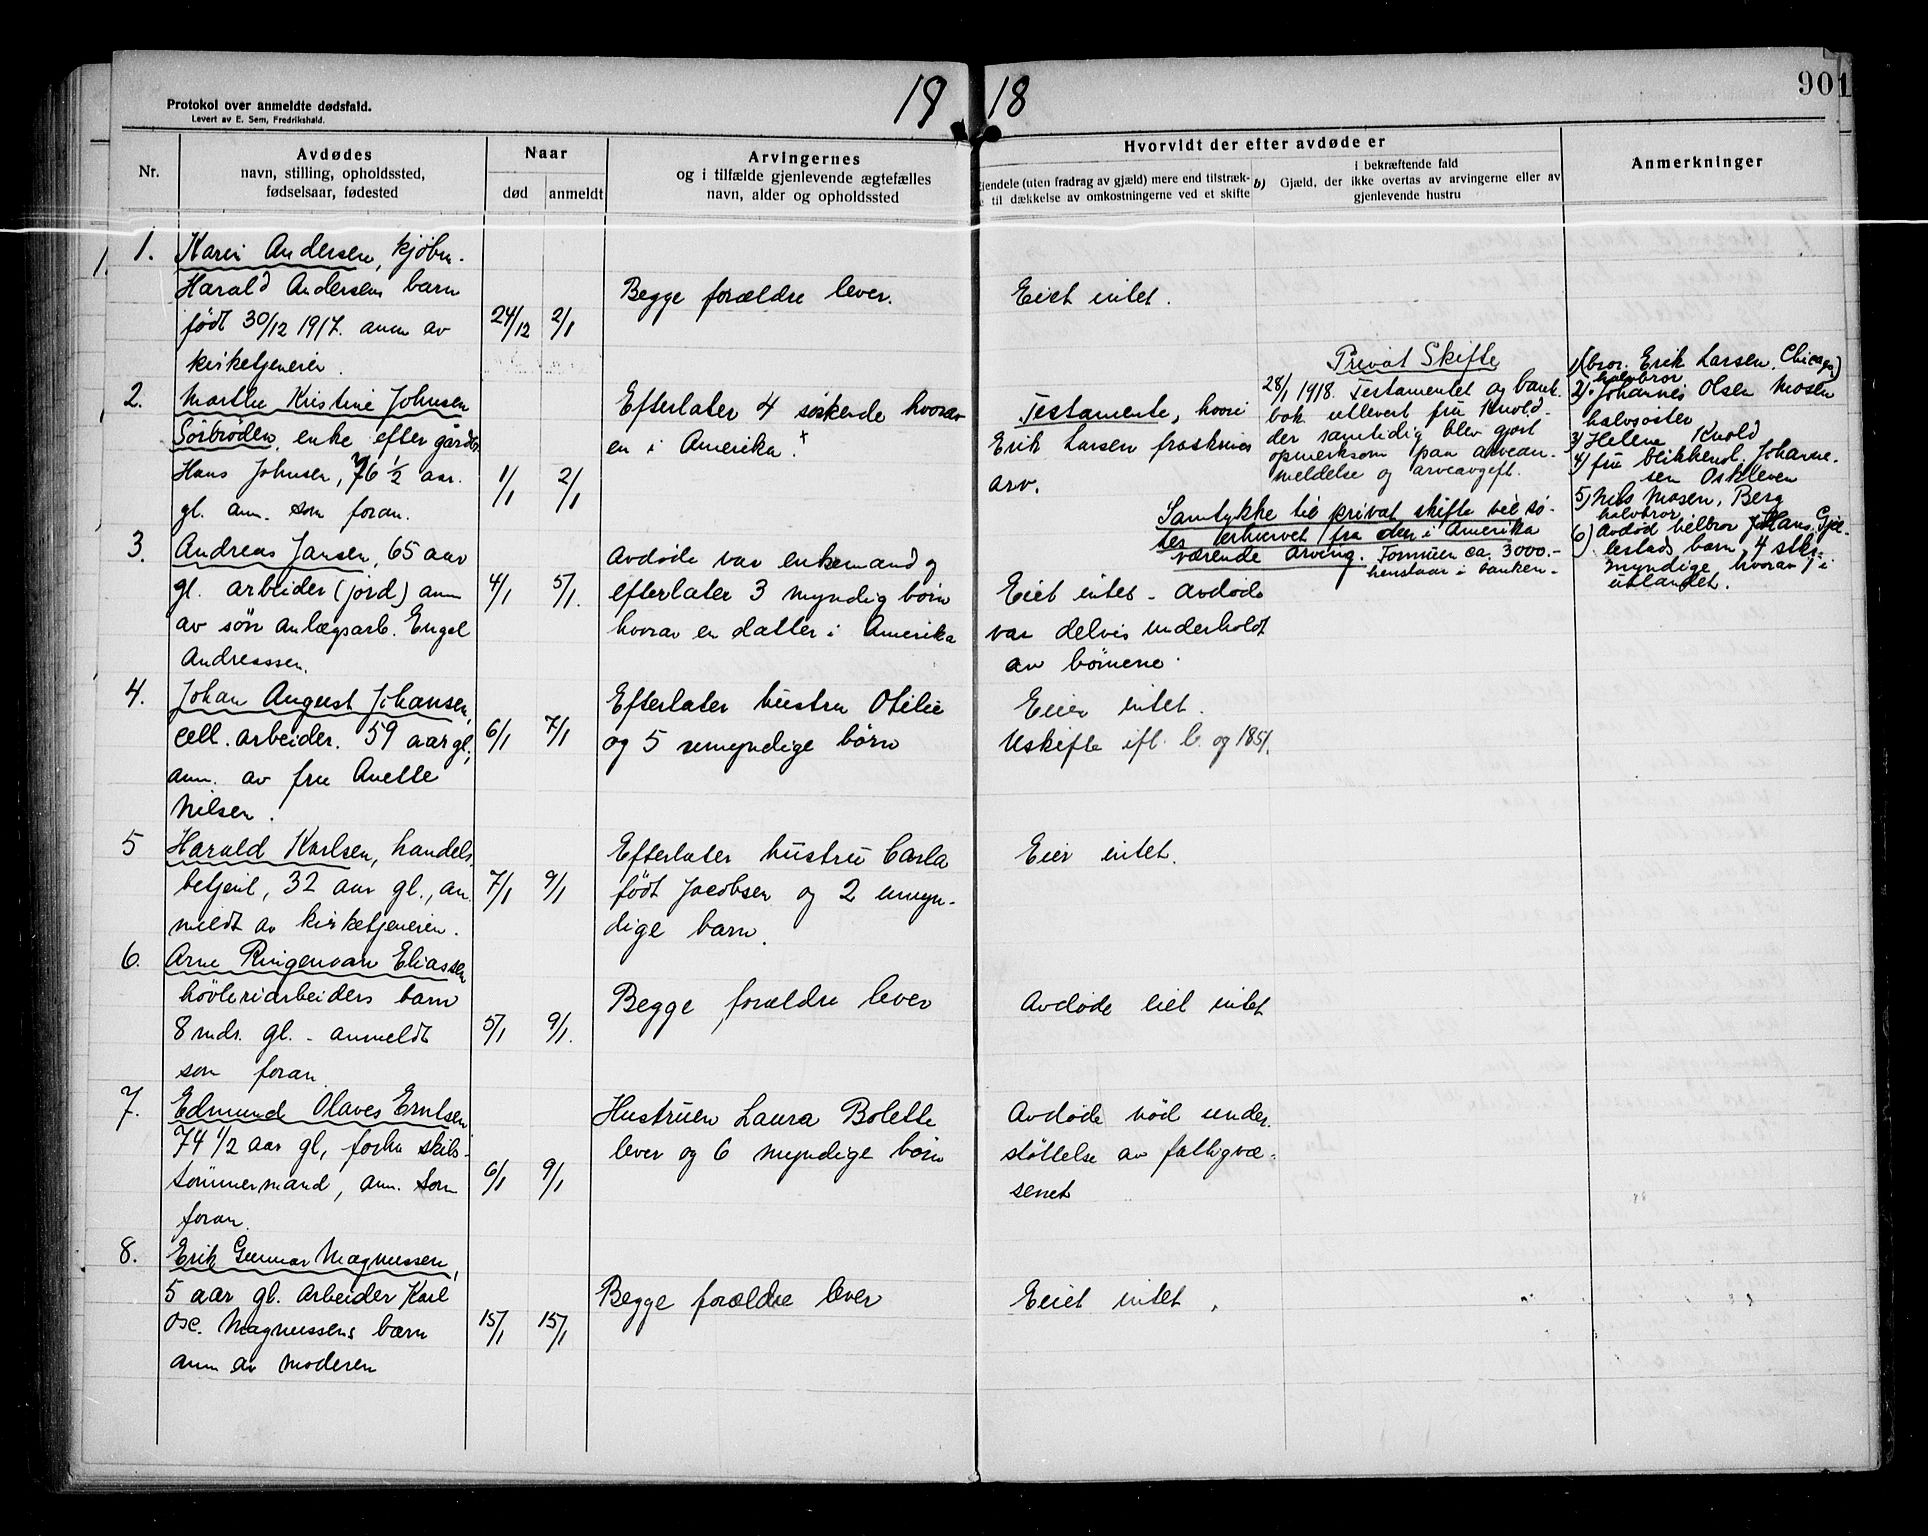 19 18
901
Protokol over anmeldte dødsfald.
Levert av E. Sem, Fredrikshald.
Nr.
Avdødes
navn, stilling, opholdssted,
fødselsaar, fødested
Naar
død
anmeldt
Arvingernes
og i tilfælde gjenlevende ægtefælles
navn, alder og opholdssted
Hvorvidt der efter avdøde er
iendele (uten fradrag av gjæld) mere end tilstræk-
e til dækkelse av omkostningerne ved et skifte
b)
i bekræftende fald
Gjæld, der ikke overtas av arvingerne eller av
gjenlevende hustru
Anmerkninger
1.
Karin Andersen, kjøbm.
Harald Andersens barn
født 30/12 1917. anm av
kirketjeneren.
24/12
2/1
Begge forældre lever.
Eiet intet.
2.
Marthe Kristine Johnsen
Sörbröden, enke efter gårdbr
Hans Johnsen, 76 1/2 aar.
gl. anm. som foran.
1/1
2/1
Efterlater 4 søskende hvorav
en i Amerika. +
Testamente, hvori
Erik Larsen fraskrives
arv.
Privat Skifte
28/1 1918. Testamentet og bank
bok utlevert fru Knold.
der samtidig blev gjort
opmerksom paa arvean-
meldelse og arveavgift.
Samtykke til privat skifte vil sø-
kes erhvervet fra den i Amerika
værende arving. Formuen ca. 3000.-
henstaar i banken.-
1) (bror. Erik Larsen, Chicago)
halvbror
2). Johannes Olsen Mosen
halvsöster
3) Helene Knold
4) fru blikkensl. Johanne-
sen Oskleven
5) Nils Mosen, Berg
halvbror
6) Avdød hélbror Johans. Gjel-
lestads barn, 4 stkr.
myndige, hvorav 1 i
utlandet.
3.
Andreas Jansen, 65 aar
gl. arbeider (jord) anm
av sön anlægsarb. Engel
Andreassen.
4/1
5/1.
Avdøde var enkemand og
efterlater 3 myndig børn
hvorav en datter i Amerika
Eiet intet - avdøde
var delvis underholdt
av børnene.
4.
Johan August Johansen,
cell. arbeider. 59 aar gl,
anm. av fru Anette
Nilsen.
6/1
7/1
Efterlater hustru Otilie
og 5 umyndige børn
Eier intet.
Uskifte ifl. b. og 1851.
5
Harald Karlsen, handels
betjent, 32 aar gl., an-
meldt av kirketjeneren.
7/1
9/1
Efterlater hustru Carla
født Jacobsen og 2 umyn-
dige barn.
Eier intet.
6.
Arne Ringenvan Eliassen
høvleriarbeiders barn
8 mdr. gl. - anmeldt
som foran
5/1
9/1.
Begge forældre lever
Avdøde eiet intet
7.
Edmund Olaves Erntsen
74 1/2 aar gl, forhv skibs-
tømmermand, anm. som
foran.
6/1
9/1
Hustruen Laura Bolette
lever og 6 myndige børn
Avdøde nød under-
støttelse av fattigvæ-
senet
8.
Erik Gunnar Magnussen,
5 aar gl. arbeider Karl
Osc. Magnussens barn
anm av moderen
15/1
15/1
Begge forældre lever
Eiet intet.